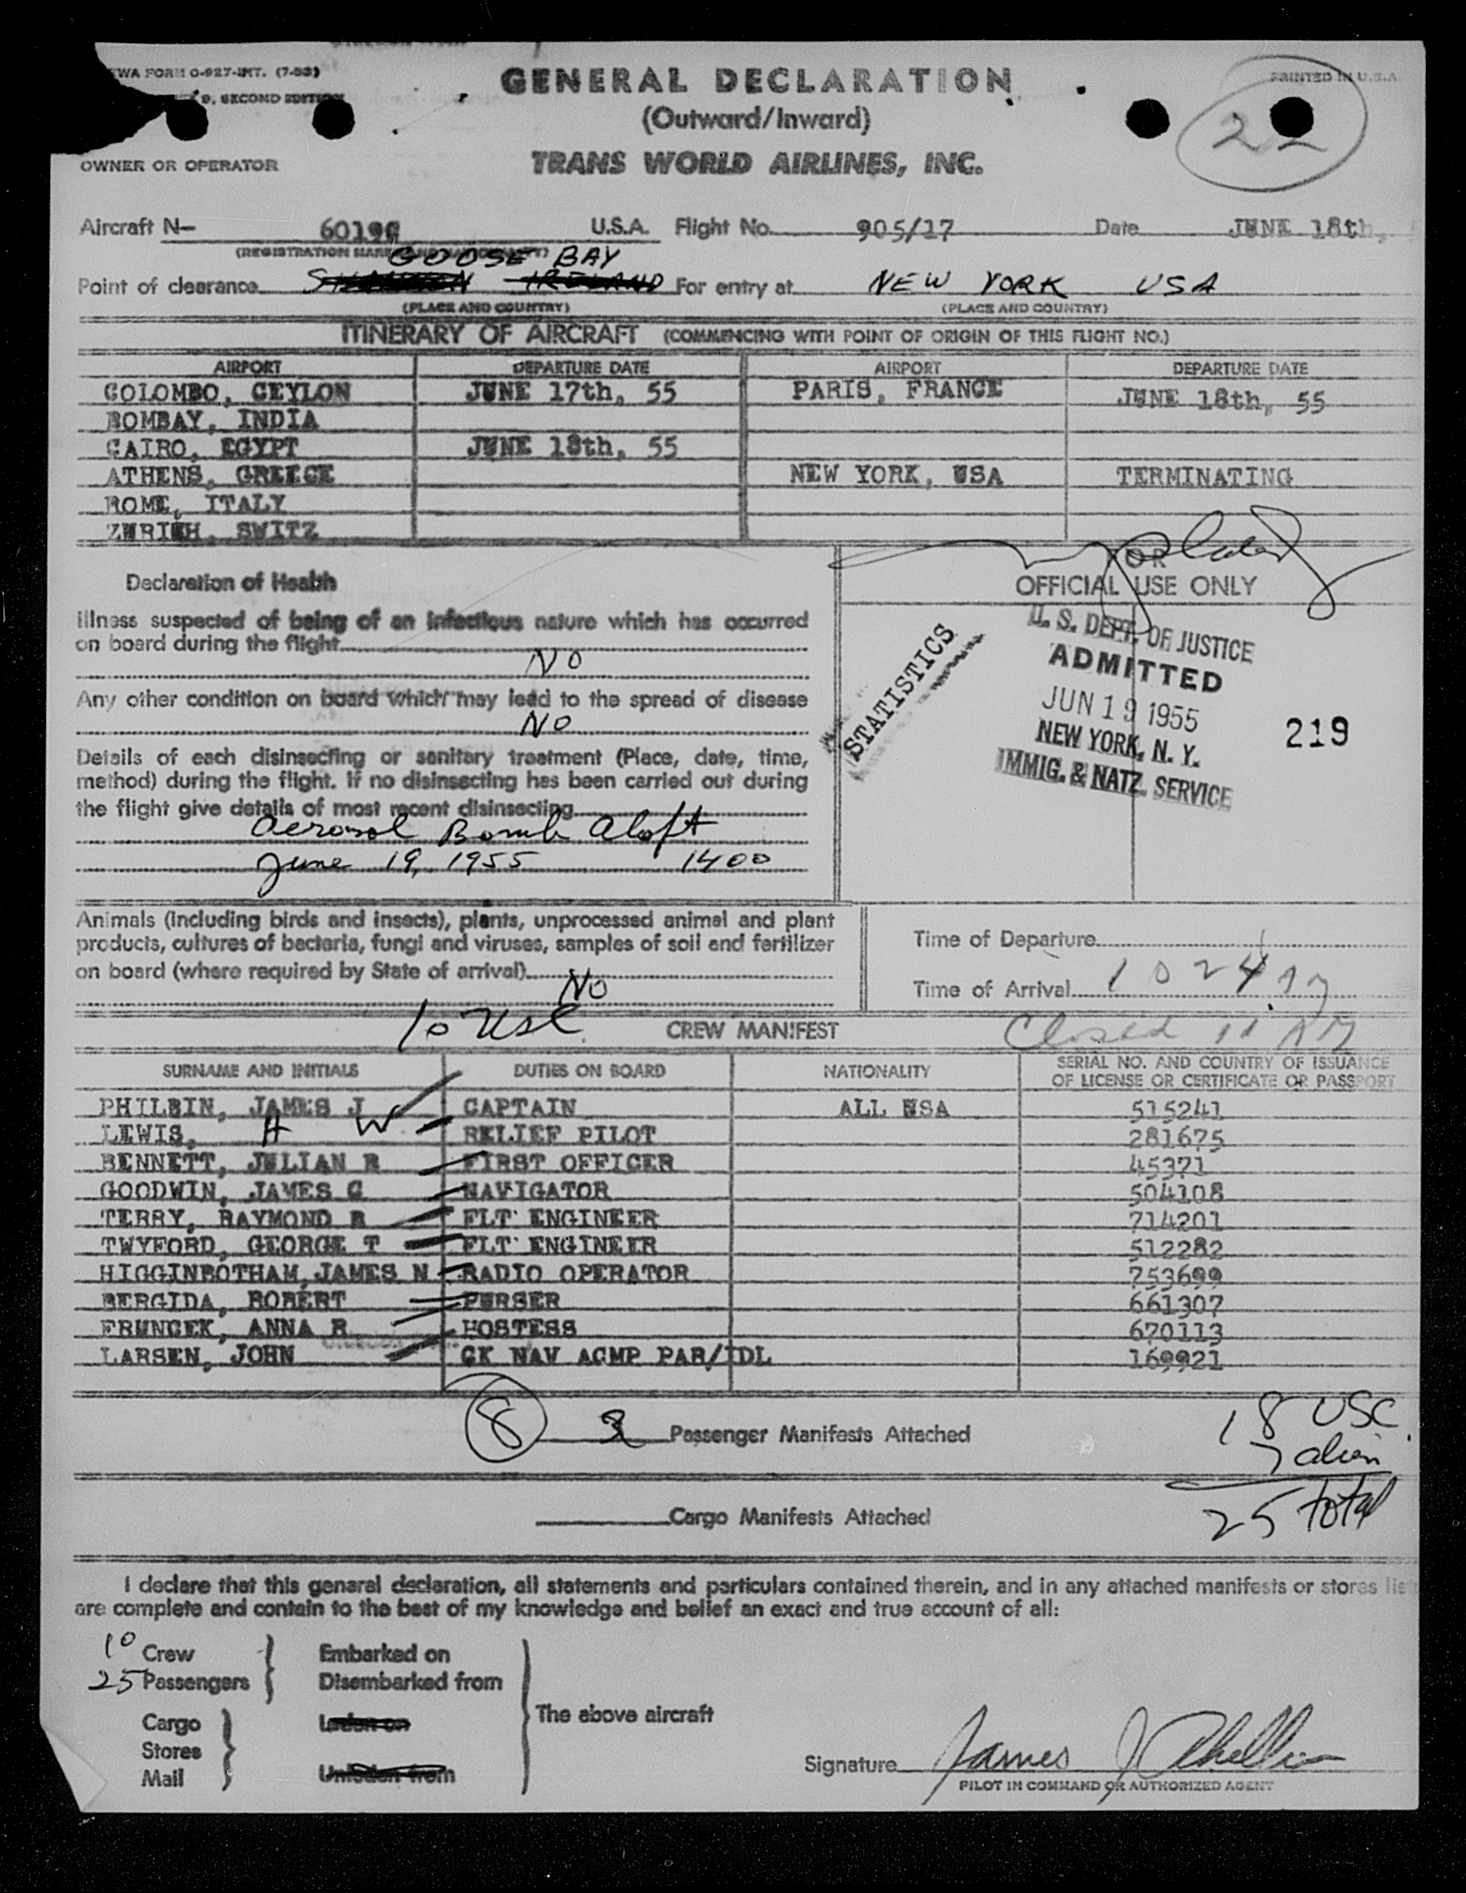 TWA FORM O-927-INT. (7-53)
PRINTED IN U.S.A.
9, SECOND EDITION
GENERAL DECLARATION
(Outward/Inward)
22
OWNER OR OPERATOR
TRANS WORLD AIRLINES, INC.
Aircraft N- 6019C U.S.A. Flight No. 905/17 Date JUNE 18th,
(REGISTRATION MARKS AND NATIONALITY)
GOOSE BAY
Point of clearance SHANNON IRELAND For entry at NEW YORK USA
(PLACE AND COUNTRY) (PLACE AND COUNTRY)
ITINERARY OF AIRCRAFT (COMMENCING WITH POINT OF ORIGIN OF THIS FLIGHT NO.)
AIRPORT DEPARTURE DATE AIRPORT DEPARTURE DATE
COLOMBO, CEYLON JUNE 17th, 55 PARIS, FRANCE JUNE 18th, 55
BOMBAY, INDIA
CAIRO, EGYPT JUNE 18th, 55
ATHENS, GREECE NEW YORK, USA TERMINATING
ROME, ITALY
ZURICH, SWITZ
Declaration of Health
FOR
OFFICIAL USE ONLY
Illness suspected of being of an infectious nature which has occurred
on board during the flight
NO
Any other condition on board which may lead to the spread of disease
NO
Details of each disinsecting or sanitary treatment (Place, date, time,
method) during the flight. If no disinsecting has been carried out during
the flight give details of most recent disinsecting
Aerosol Bomb Aloft
June 19, 1955 1400
STATISTICS
U. S. DEPT. OF JUSTICE
ADMITTED
JUN 19 1955
NEW YORK, N. Y.
IMMIG. & NATZ. SERVICE
219
Animals (including birds and insects), plants, unprocessed animal and plant
products, cultures of bacteria, fungi and viruses, samples of soil and fertilizer
on board (where required by State of arrival)
NO
Time of Departure
Time of Arrival 1024 AM
10 USC CREW MANIFEST Closed 11 AM
SURNAME AND INITIALS DUTIES ON BOARD NATIONALITY SERIAL NO. AND COUNTRY OF ISSUANCE
OF LICENSE OR CERTIFICATE OR PASSPORT
PHILBIN, JAMES J CAPTAIN ALL USA 515241
LEWIS, H W RELIEF PILOT 281675
BENNETT, JULIAN R FIRST OFFICER 45371
GOODWIN, JAMES G NAVIGATOR 504108
TERRY, RAYMOND R FLT ENGINEER 714201
TWYFORD, GEORGE T FLT ENGINEER 512282
HIGGINBOTHAM, JAMES N RADIO OPERATOR 753699
BERGIDA, ROBERT PURSER 661307
FRUNCEK, ANNA R HOSTESS 670113
LARSEN, JOHN CK NAV ACMP PAR/IDL 169921
8 Passenger Manifests Attached
18 USC
7 alien
25 total
Cargo Manifests Attached
I declare that this general declaration, all statements and particulars contained therein, and in any attached manifests or stores lis
are complete and contain to the best of my knowledge and belief an exact and true account of all:
10 Crew Embarked on
25 Passengers Disembarked from
The above aircraft
Cargo Laden on
Stores
Mail Unladen from
Signature James J Philbin
PILOT IN COMMAND OR AUTHORIZED AGENT